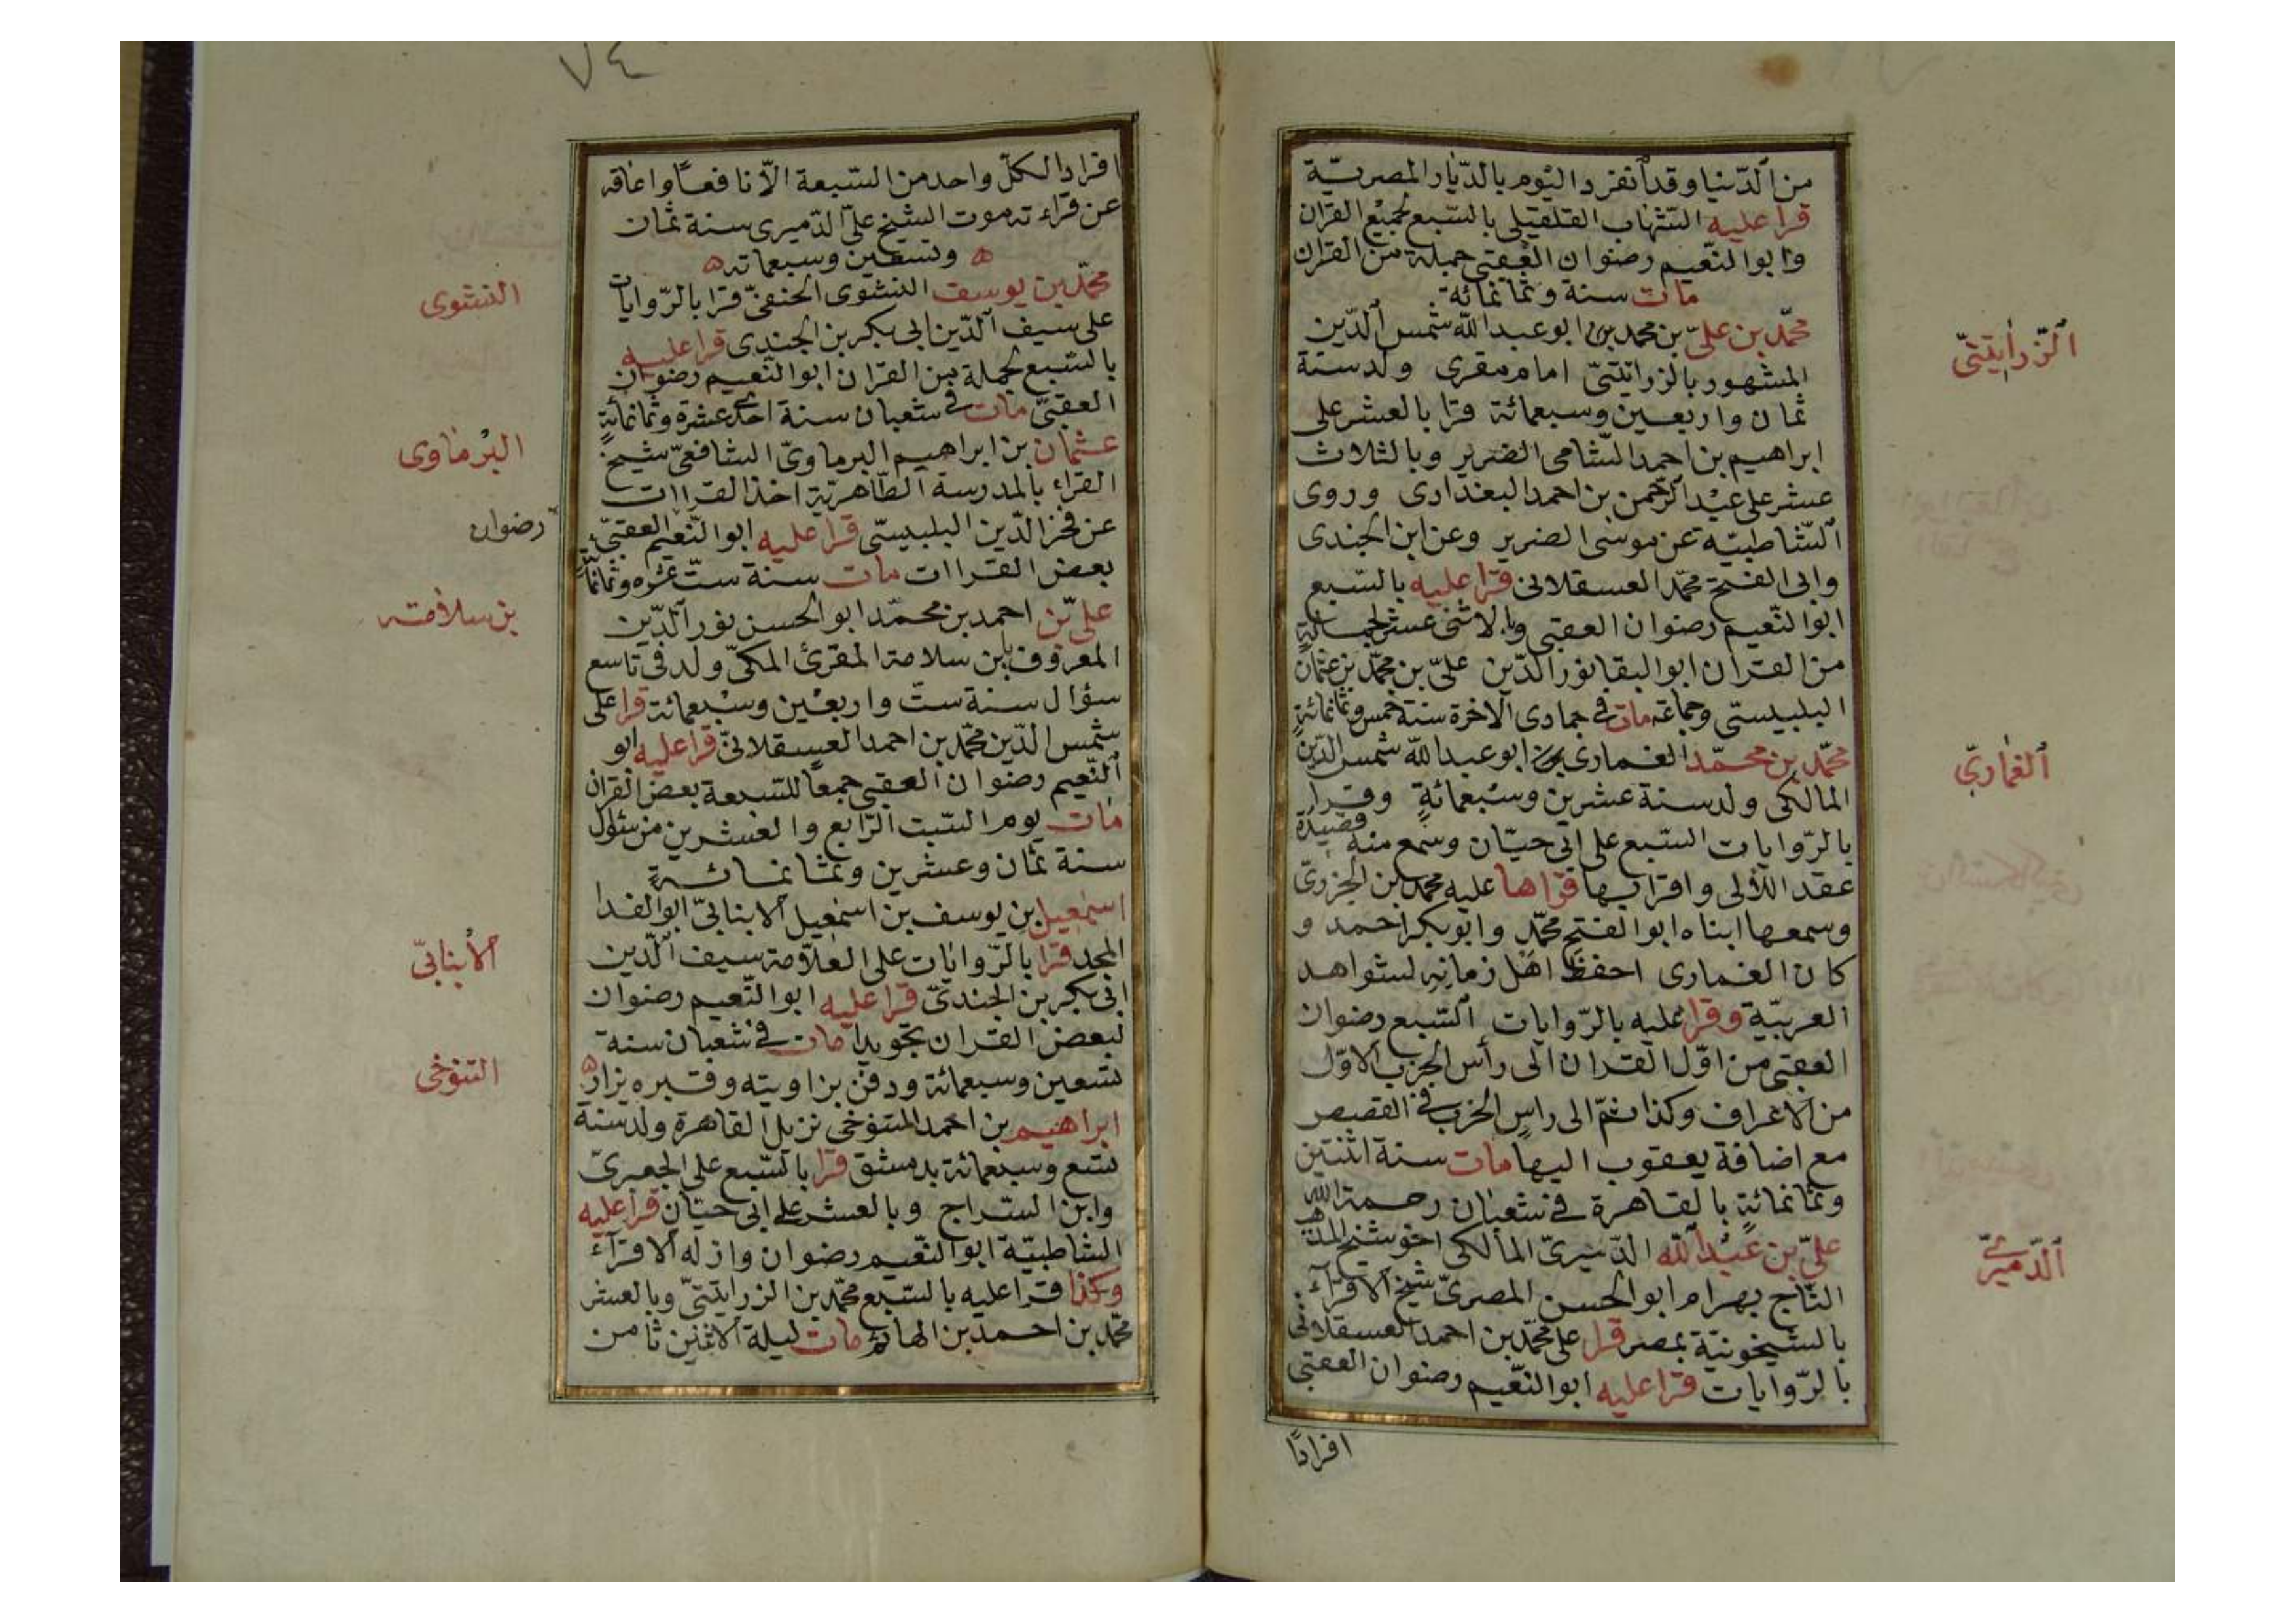 من ٱلدّنيا وقد ٱنفرد اليوم بالدّيار المصريّة
قرا عليه الشّهاب القلقيلى بالسّبع لجميع القران
وابو النّعيم رضوان العقبى جملة من القران
مات سنة وثمانمائة
محمّد بن علىّ بن محمد بن ابو عبد اللّه شمس ٱلدّين
المشهور بالزراتيتىّ امام مقرى ولد سنة
ثمان واربعين وسبعمائة قرا بالعشر على
ابراهيم بن احمد الشّامى الضرير وبالثلاث
عشر على عبد ٱلرّحمن بن احمد البغدادى وروى
ٱلشّاطبيّه عن موسى الضرير وعن ابن الجندى
وابى الفتح محمّد العسقلانى قرا عليه بالسّبع
ابو النّعيم رضوان العقبى وبالاثنى عشر لجمالة
من القران ابو البقا نور الدّين علىّ بن محمّد بن عثمان
البلبيستى وجماعة مات فى جمادى ٱلاخرة سنة خمس وثمانمائةٍ
محمّد بن محمّد الغمارى ابو عبد اللّه شمس الدّين
المالكى ولد سنة عشرين وسبعمائةٍ وقرا
بالرّوايات السّبع على ابى حيّان وسمع منه قصيدة
عقد اللّألى واقرا بها قراها عليه محمد بن الجزرىّ
وسمعها ابناه ابو الفتح محمّد وابو بكر احمد و
كان الغمارى احفظ اهل زمانه لشواهد
العربيّة وقرا عليه بالرّوايات ٱلسّبع رضوان
العقبى من اوّل القران الى رأس الحزب ٱلاوّل
من ٱلاعراف وكذا ثمّ الى راس الحزب فى القصص
مع اضافة يعقوب اليها مات سنة اثنتين
وثمانمائةٍ بالقاهرة فى شعبان رحمة اللّه
علىّ بن عبد ٱللّه الدّميرىّ المالكى اخو شيخ المذهب
التّاج بهرام ابو الحسن المصرىّ شيخ ٱلاقرآء
بالشّيخونيّة بمصر قرا على محمّد بن احمد العسقلانى
بالرّوايات قرا عليه ابو النّعيم رضوان العقبى
افرادًا
ٱلزّراتيتىّ
ٱلغمارىّ
ٱلدّميرىّ
٧٤
افرادا لكلّ واحد من السّبعة الاّ نافعًا واعاقه
عن قراءته موت الشيخ علىّ الدّميرى سنة ثمان
وتسعين وسبعمائه
محمّد بن يوسف النشوى الحنفىّ قرا بالرّوايات
على سيف ٱلدّين ابى بكر بن الجندى قرا عليه
بالسّبع لجملة من القران ابو النّعيم رضوان
العقبىّ مات فى شعبان سنة احدى عشرة وثمانمائةٍ
عثمان بن ابراهيم البرماوىّ الشافعىّ شيخ
القراء بالمدرسة الظّاهريّة اخذ القراات
عن فخر الدّين البلبيستى قرا عليه ابو النّعيم العقبىّ
بعض القراات مات سنة ستّ عشره وثمانمائة
علىّ بن احمد بن محمّد ابو الحسن نور ٱلدّين
المعروف بابن سلامة المقرئ المكىّ ولد فى تاسع
سؤال سنة ستّ واربعين وسبعمائة قرا على
شمس الدّين محمّد بن احمد العسقلانىّ قرا عليه ابو
ٱلنّعيم رضوان العقبى جمعًا للسّبعة بعض القران
مات يوم السّبت الرّابع والعشرين من سؤل
سنة ثمان وعشرين وثمانمائةٍ
اسمعيل بن يوسف بن اسمعيل ٱلابنابىّ ابو الفدا
المجد قرا بالرّوايات على العلاّمة سيف ٱلدّين
ابى بكر بن الجندىّ قرا عليه ابو النّعيم رضوان
لبعض القران تجويدا مات فى شعبان سنة
تسعين وسبعمائة ودفن بزاويته وقبره يزار
ابراهيم بن احمد التنوخى نزيل القاهرة ولد سنة
تسع وسبعمائة بدمشق قرا بالسّبع على الجعبرىّ
وابن السّراج وبالعشر على ابى حيّان قرا عليه
الشاطبيّة ابو النّعيم رضوان واذ له ٱلاقرآء
وكذا قرا عليه بالسّبع محمّد بن الزراتيتىّ وبالعشر
محمّد بن احمد بن الهائم مات ليلة ٱلاثنين ثامن
النشوى
البرماوى
رضوان
بن سلامة
ٱلابنابىّ
التنوخى